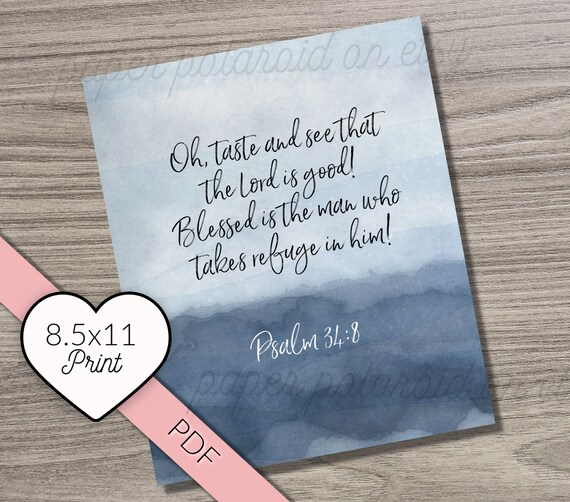 paper polaroid on etsy
Oh, taste and see that
the Lord is good!
Blessed is the man who
takes refuge in him!
Psalm 34:8
8.5x11
Print
paper polaroid on
PDF